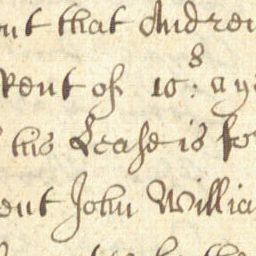 ent that Andrew
Rent of 10s: a ye
his Lease is fo
ent John Willia